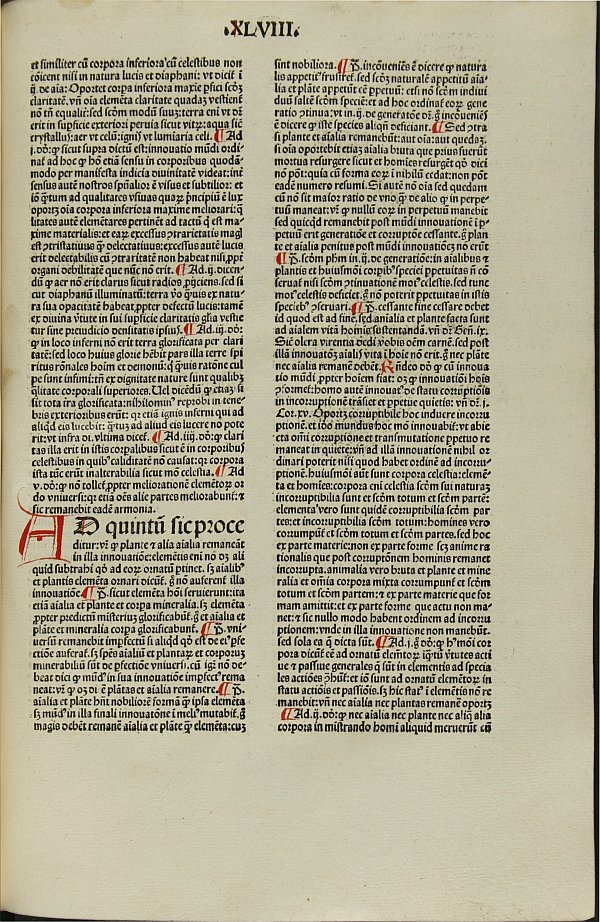 .XLVIII.
et similiter cũ corpora inferiora cũ celestibus non
cõicent nisi in natura lucis et diaphani: vt dicit̃ ĩ
ij. de aĩa: Oportet corpa inferiora maxĩe ꝑfici scõꝫ
claritatẽ. vñ oĩa elemẽta claritate quadaꝫ vestient̃
nõ tñ equalit̃: sed scõm modũ suuꝫ: terra eni vt dr̃
erit in suꝑficie exteriori peruia sicut vitrꝫ: aqua sic̃
crystallus: aer vt celũ: ignis vt lumiaria celi. ¶ Ad
j. dõꝫ: ꝙ sicut supra dictũ est: innouatio mũdi ordi-
nat̃ ad hoc ꝙ hõ etiã sensu in corporibus quodã-
modo per manifesta indicia diuinitatẽ videat: int̃
sensus autẽ nostros spũalior ẽ visus et subtilior: et
iõ ꝙ̃tum ad qualitates visuas quaꝝ p̃ncipiũ ẽ lux
oportꝫ oĩa corpora inferiora maxime meliorari: q̃
litates autẽ elemẽtares ꝑtinẽt ad tactũ q̃ est ma-
xime materialis: et eaꝝ excessus ↄ̃trarietatis magꝭ
est ↄ̃tristatiuus ꝙ̃ delectatiuus: excessus autẽ lucis
erit delectabilis cũ ↄ̃trarietatẽ non habeat nisi ꝓpt̃
organi debilitatẽ que nũc nõ erit. ¶ Ad .ij. dicen-
dũ ꝙ aer nõ erit clarus sicut radios ꝓijciens. sed si
cut diaphanũ illuminatũ: terra vo ꝙ̃uis ex natu-
ra sua opacitatẽ habeat ꝓpter defectũ lucis: tamẽ
ex diuina ṽtute in sui suꝑficie claritatis glĩa vestie
tur sine preiudicio densitatis ipsius. ¶ Ad .iij. dõꝫ:
ꝙ in loco inferni nõ erit terra glorificata per clari
tatẽ: sed loco huius glorie hẽbit pars illa terre spi
ritus rõnales hoĩm et demonũ: q̃ ꝙ̃uis ratõne cul
pe sunt infimi: tñ ex dignitate nature sunt qualibꝫ
q̃litate corporali superiores. Uel dicẽdũ ꝙ etiaꝫ si
sit tota r̃ra glorificata: nihilomin⁹ reprobi in tene-
bris exterioribus erũt: qꝛ etiã ignis inferni qui ad
aliq̃d eis lucebit: ꝙ̃tuꝫ ad aliud eis lucere no pote
rit: vt infra di. vltima dicet̃. ¶ Ad .iiij. dõꝫ: ꝙ clari
tas illa erit in istis corꝑalibus sicut ẽ in corporibus
celestibus in quib⁹ caliditatẽ nõ causat: qꝛ corpora
ista tũc erũt inalterabilia sicut mõ celestia. ¶ Ad
v. dõꝫ: ꝙ nõ tollet̃ ꝓpter meliorationẽ elemẽtoꝝ or
do vniuersi: qꝛ etiã oẽs alie partes meliorabunt̃: ⁊
sic remanebit eadẽ armonia.
AD quintũ sic proce
ditur: vr̃ ꝙ plante ⁊ alĩa aĩalia remaneãt
in illa innouatiõe: elemẽtis eni nõ oꝫ ali
quid subtrahi qd̃ ad eoꝝ ornatũ ꝑtinet. sꝫ aĩalibꝰ
et plantis elemẽta ornari dicunt̃. g̃ nõ auferent̃ illa
innouatiõe. ¶ P̃. sicut elemẽta hõni seruierunt: ita
etiã aĩalia et plante et corpa mineralia. sꝫ elemẽta
ꝓpter predictũ misteriuꝫ glorificabunt̃. g̃ et aĩalia et
plãte et mineralia corpa glorificabunt̃. ¶ P̃. vni-
uersũ remanebit impfectũ si aliq̃d qd̃ est de ei⁹ ꝑfe
ctiõe auferat̃. sꝫ spẽs aĩaliũ et plantaꝝ et corporuꝫ
mineraliũ sũt de ꝑfectiõe vniuersi. cũ igit̃ nõ de-
beat dici ꝙ mũd⁹ in sua innouatiõe imꝑfect⁹ rema
neat: vr̃ ꝙ oꝫ di c̃ plãtas et aĩalia remanere. ¶ P̃.
aĩalia et plãte hñt nobiliorẽ formã ꝙ̃ ipsa elemẽta
sꝫ mũd⁹ in illa finali innouatõne ĩ meli⁹ mutabit̃. g̃
magis debẽt remanẽ aĩalia et plãte ꝙ̃ elemẽta: cuꝫ
sint nobiliora. ¶ P̃. incõueniẽs ẽ dicere ꝙ natura
lis appetit⁹ frustret̃. sed scõꝫ naturalẽ appetitũ aĩa-
lia et plãte appetũt cẽ ꝑpetuũ: etsi nõ scõm indiui
duũ saltẽ scõm speciẽ: et ad hoc ordinat̃ eoꝝ gene
ratio ↄ̃tinua: vt in .ij. de generatõe dr̃. g̃ incõueniẽs
ẽ dicere ꝙ iste species aliqñ deficiant. ¶ Sed ↄ̃tra
si plante et aĩalia remanebũt: aut oĩa: aut quedaꝫ.
si oĩa oportebit etiaꝫ aĩalia bruta que prius fuerũt
mortua resurgere sicut et homĩes resurgẽt qd̃ dici
nõ põt: quia cũ forma eoꝝ ĩ nihilũ cedat: non põt
eadẽ numero resumi. Si autẽ nõ oĩa sed quedam
cũ nõ sit maior ratio de vno ꝙ̃ de alio ꝙ in perpe-
tuũ maneat: vr̃ ꝙ nullũ eoꝝ in perpetuũ manebit
sed quicq̃d remanebit post mũdi innouationẽ ĩ ꝑ-
petuũ erit generatiõe et corruptõe cessante. g̃ plan
te et aĩalia penitus post mũdi innouationẽ nõ erũt
¶ P̃. scõm phm in .ij. de generatiõe: in aĩalibus ⁊
plantis et huiusmõi corꝑib⁹ speciei ꝑpetuitas ñ cõ
seruat̃ nisi scõm ↄ̃tinuationẽ mot⁹ celestis. sed tunc
mot⁹ celestis deficiet. g̃ nõ poterit ꝑpetuitas in istis
specieb⁹ ↄ̃seruari. ¶ P̃. cessante fine cessare debet
id quod est ad finẽ. sed aĩalia et plante facta sunt
ad aĩalem vitã homĩs sustentandã. vñ dr̃ Geñ. ix.
Sic̃ olera virentia dedi vobis oẽm carnẽ. sed post
illã innouatõꝫ aĩalis vita ĩ hoĩe nõ erit. g̃ nec plãte
nec aĩalia remanẽ debẽt. Rñdeo dõ ꝙ cũ innoua
tio mũdi ꝓpter hoĩem fiat: oꝫ ꝙ innouatiõi hoĩs
ↄ̃formet̃: homo autẽ innouat⁹ de statu corruptiõis
in incorruptiõem trãsiet et ꝑpetue quietis: vñ dr̃. j.
Cor. xv. Oportꝫ corruptibile hoc induere incorru
ptionẽ. et iõo mundus hoc mõ innouabit̃: vt abie
cta oĩ corruptiõne et transmutatione ꝑpetuo re
maneat in quiete: vñ ad illã innouationẽ nihil or
dinari poterit nisi quod habet ordinẽ ad incorru-
ptionẽ. huiusmõi aũt sunt corpora celestia: elemẽ-
ta et homĩes: corpora eni celestia scõm sui naturaꝫ
incorruptibilia sunt et scõm totum et scõm partẽ:
elementa vero sunt quidẽ corruptibilia scõm par
tes: et incorruptibilia scõm totum: homines vero
corrumpũt̃ et scõm totũm et scõm partes. sed hoc
ex parte materie: non ex parte forme scꝫ anime ra
tionalis que post corruptõnem hominis remanet
incorrupta. animalia vero bruta et plante et mine
ralia et oĩma corpora mixta corrumpunt̃ et scõm
totum et scõm partem: ⁊ ex parte materie que for
mam amittit: et ex parte forme que actu non ma-
net: ⁊ sic nullo modo habent ordinem ad incorru
ptionem: vnde in illa innouatione non manebũt.
sed sola ea q̃ dicta sũt. ¶ Ad .j. g̃ dõꝫ: ꝙ h⁹mõi cor
pora dicũt̃ cẽ ad ornatũ elemẽtoꝝ: iꝙ̃tũ ṽtutes acti
ue ⁊ passiue generales q̃ sũt in elementis ad specia
les actiões ↄ̃hũt̃: et iõ sunt ad ornatũ elemẽtoꝝ in
statu actiõis et passiõis. sꝫ hic stat⁹ ĩ elemẽtis nõ re
manebit: vñ nec aĩalia nec plantas remanẽ oportꝫ
¶ Ad .ij. dõꝫ: ꝙ nec aĩalia nec plante nec alĩq̃ alia
corpora in mistrando homi aliquid meruerũt cũ